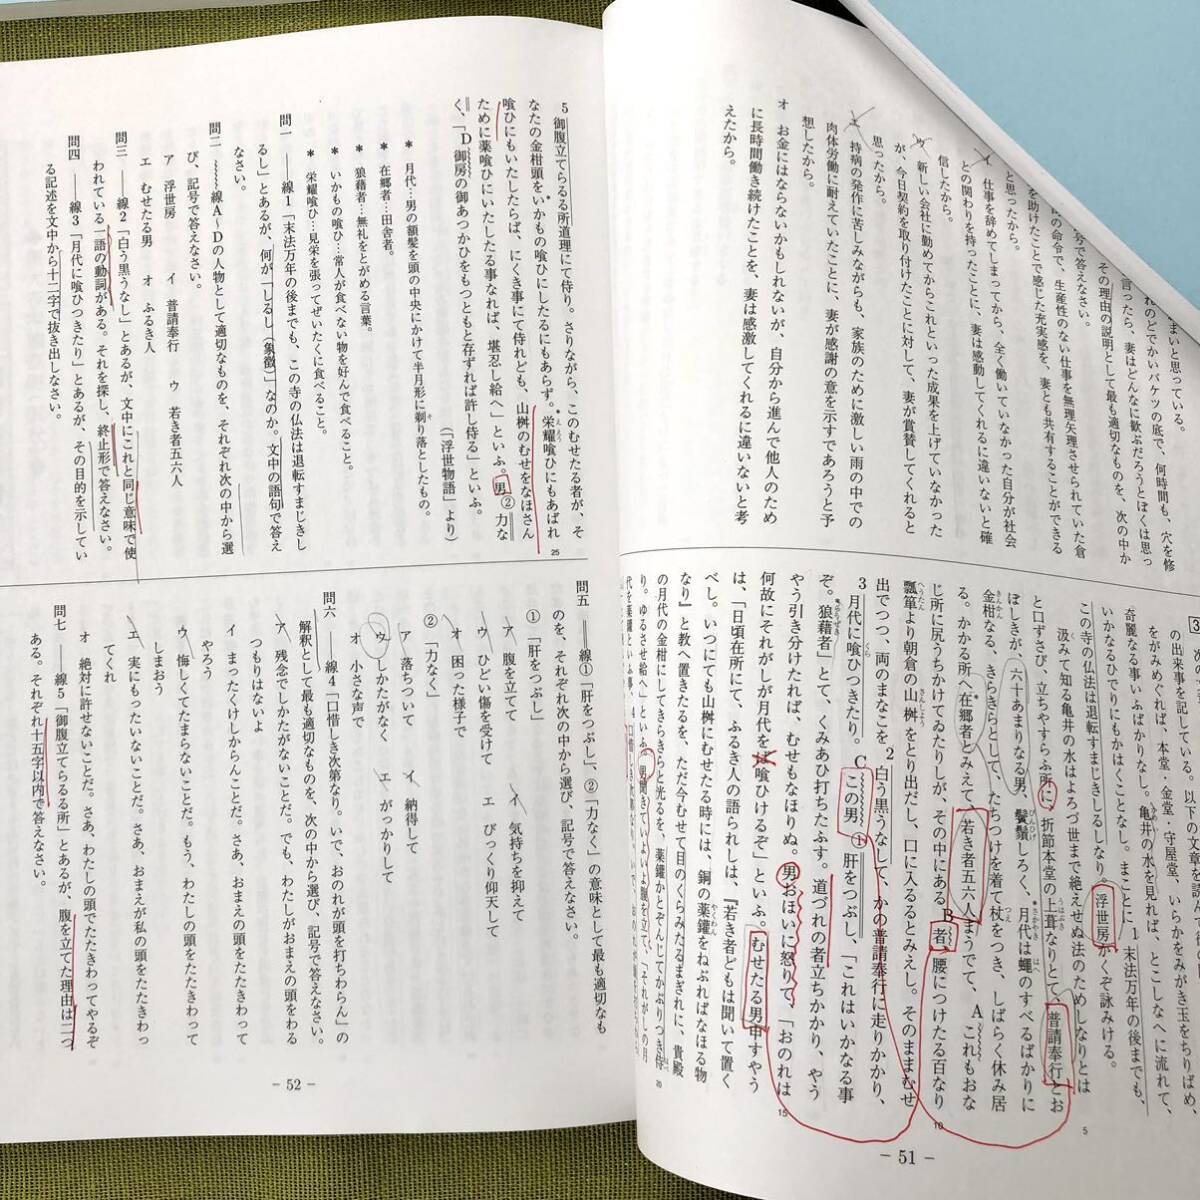 まいと思っている。
れのどでかいバケツの底で、何時間も、穴を修
言ったら、妻はどんなに歓ぶだろうとぼくは思っ
その理由の説明として最も適切なものを、次の中か
号で答えなさい。
の命令で、生産性のない仕事を無理矢理させられていた倉
を助けたことで感じた充実感を、妻とも共有することができる
と思ったから。
イ 仕事を辞めてしまってから、全く働いていなかった自分が社会
との関わりを持ったことに、妻は感動してくれるに違いないと確
信したから。
ウ 新しい会社に勤めてからこれといった成果を上げていなかった
が、今日契約を取り付けたことに対して、妻が賞賛してくれると
思ったから。
エ 持病の発作に苦しみながらも、家族のために激しい雨の中での
肉体労働に耐えていたことに、妻が感謝の意を示すであろうと予
想したから。
オ お金にはならないかもしれないが、自分から進んで他人のため
に長時間働き続けたことを、妻は感激してくれるに違いないと考
えたから。
3 次の
の出来事を記している。以下の文章を読ん
をがみめぐれば、本堂・金堂・守屋堂、いらかをみがき玉をちりばめ、
奇麗なる事いふばかりなし。亀井の水を見れば、とこしなへに流れて、
いかなるひでりにもかはくことなし。まことに1末法万年の後までも、
この寺の仏法は退転すまじきしるしなり。浮世房かくぞ詠みける。
汲みて知る亀井の水はよろづ世まで絶えせぬ法のためしなりとは
と口ずさび、立ちやすらふ所に、折節本堂の上葺なりとて、普請奉行とお
ぼしきが、六十あまりなる男、鬢鬚しろく、月代は蠅のすべるばかりに
金柑なる、きらきらとして、たちつけを着て杖をつき、しばらく休み居
る。かかる所へ在郷者とみえて、若き者五六人まうでて、Aこれもおな
じ所に尻うちかけてゐたりしが、その中にあるB者、腰につけたる百なり
瓢箪より朝倉の山椒をとり出だし、口に入るるとみえし。そのままむせ
出でつつ、両のまなこを2白う黒うなして、かの普請奉行に走りかかり、
3月代に喰ひつきたり。Cこの男①肝をつぶし、「これはいかなる事
ぞ。狼藉者」とて、くみあひ打ちたふす。道づれの者立ちかかり、やう
やう引き分けたれば、むせもなほりぬ。男おほいに怒りて、「おのれは
何故にそれがしが月代をば喰ひけるぞ」といふ。むせたる男申すやう
は、「日頃在所にて、ふるき人の語られしは、『若き者どもは聞いて置く
べし。いつにても山椒にむせたる時には、銅の薬鑵をねぶればなほる物
なり』と教へ置きたるを、ただ今むせて目のくらみたるまぎれに、貴殿
の月代の金柑にしてきらきらと光るを、薬鑵かとぞんじてかぶりつき侍
り。ゆるさせ給へ」といふ。男聞きていよいよ腹を立て、「それがしの月
5
10
15
20
- 51 -
5御腹立てらるる所道理にて侍り。さりながら、このむせたる者が、そ
なたの金柑頭をいかもの喰ひにしたるにもあらず。栄耀喰ひにもあばれ
喰ひにもいたしたらば、にくき事にて侍れども、山椒のむせをなほさん
ために薬喰ひにいたしたる事なれば、堪忍し給へ」といふ。男②力な
く、「D御房の御あつかひをもつともと存ずれば許し侍る」といふ。
25
（「浮世物語」より）
＊ 月代…男の額髪を頭の中央にかけて半月形に剃り落としたもの。
＊ 在郷者…田舎者。
＊ 狼藉者…無礼をとがめる言葉。
＊ いかもの喰ひ…常人が食べない物を好んで食べること。
＊ 栄耀喰ひ…見栄を張ってぜいたくに食べること。
問一 ――線1「末法万年の後までも、この寺の仏法は退転すまじきし
るし」とあるが、何が「しるし（象徴）」なのか。文中の語句で答え
なさい。
問二 線A～Dの人物として適切なものを、それぞれ次の中から選
び、記号で答えなさい。
ア 浮世房 イ 普請奉行 ウ 若き者五六人
エ むせたる男 オ ふるき人
問三 ――線2「白う黒うなし」とあるが、文中にこれと同じ意味で使
われている一語の動詞がある。それを探し、終止形で答えなさい。
問四 ――線3「月代に喰ひつきたり」とあるが、その目的を示してい
る記述を文中から十二字で抜き出しなさい。
問五 ――線①「肝をつぶし」、②「力なく」の意味として最も適切なも
のを、それぞれ次の中から選び、記号で答えなさい。
①「肝をつぶし」
ア 腹を立てて イ 気持ちを抑えて
ウ ひどい傷を受けて エ びっくり仰天して
オ 困った様子で
②「力なく」
ア 落ちついて イ 納得して
ウ しかたがなく エ がっかりして
オ 小さな声で
問六 ――線4「口惜しき次第なり。いで、おのれが頭を打ちわらん」の
解釈として最も適切なものを、次の中から選び、記号で答えなさい。
ア 残念でしかたがないことだ。でも、わたしがおまえの頭をわる
つもりはないよ
イ まったくけしからんことだ。さあ、おまえの頭をたたきわって
やろう
ウ 悔しくてたまらないことだ。もう、わたしの頭をたたきわって
しまおう
エ 実にもったいないことだ。さあ、おまえが私の頭をたたきわっ
てくれ
オ 絶対に許せないことだ。さあ、わたしの頭でたたきわってやるぞ
問七 ――線5「御腹立てらるる所」とあるが、腹を立てた理由は二つ
ある。それぞれ十五字以内で答えなさい。
- 52 -